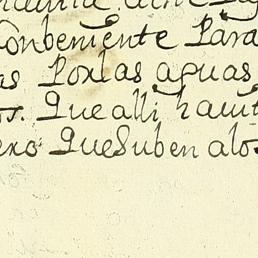 Conbeniente Para
as Porlas aguas
os. Que alli hauit
ero Que Suben alos